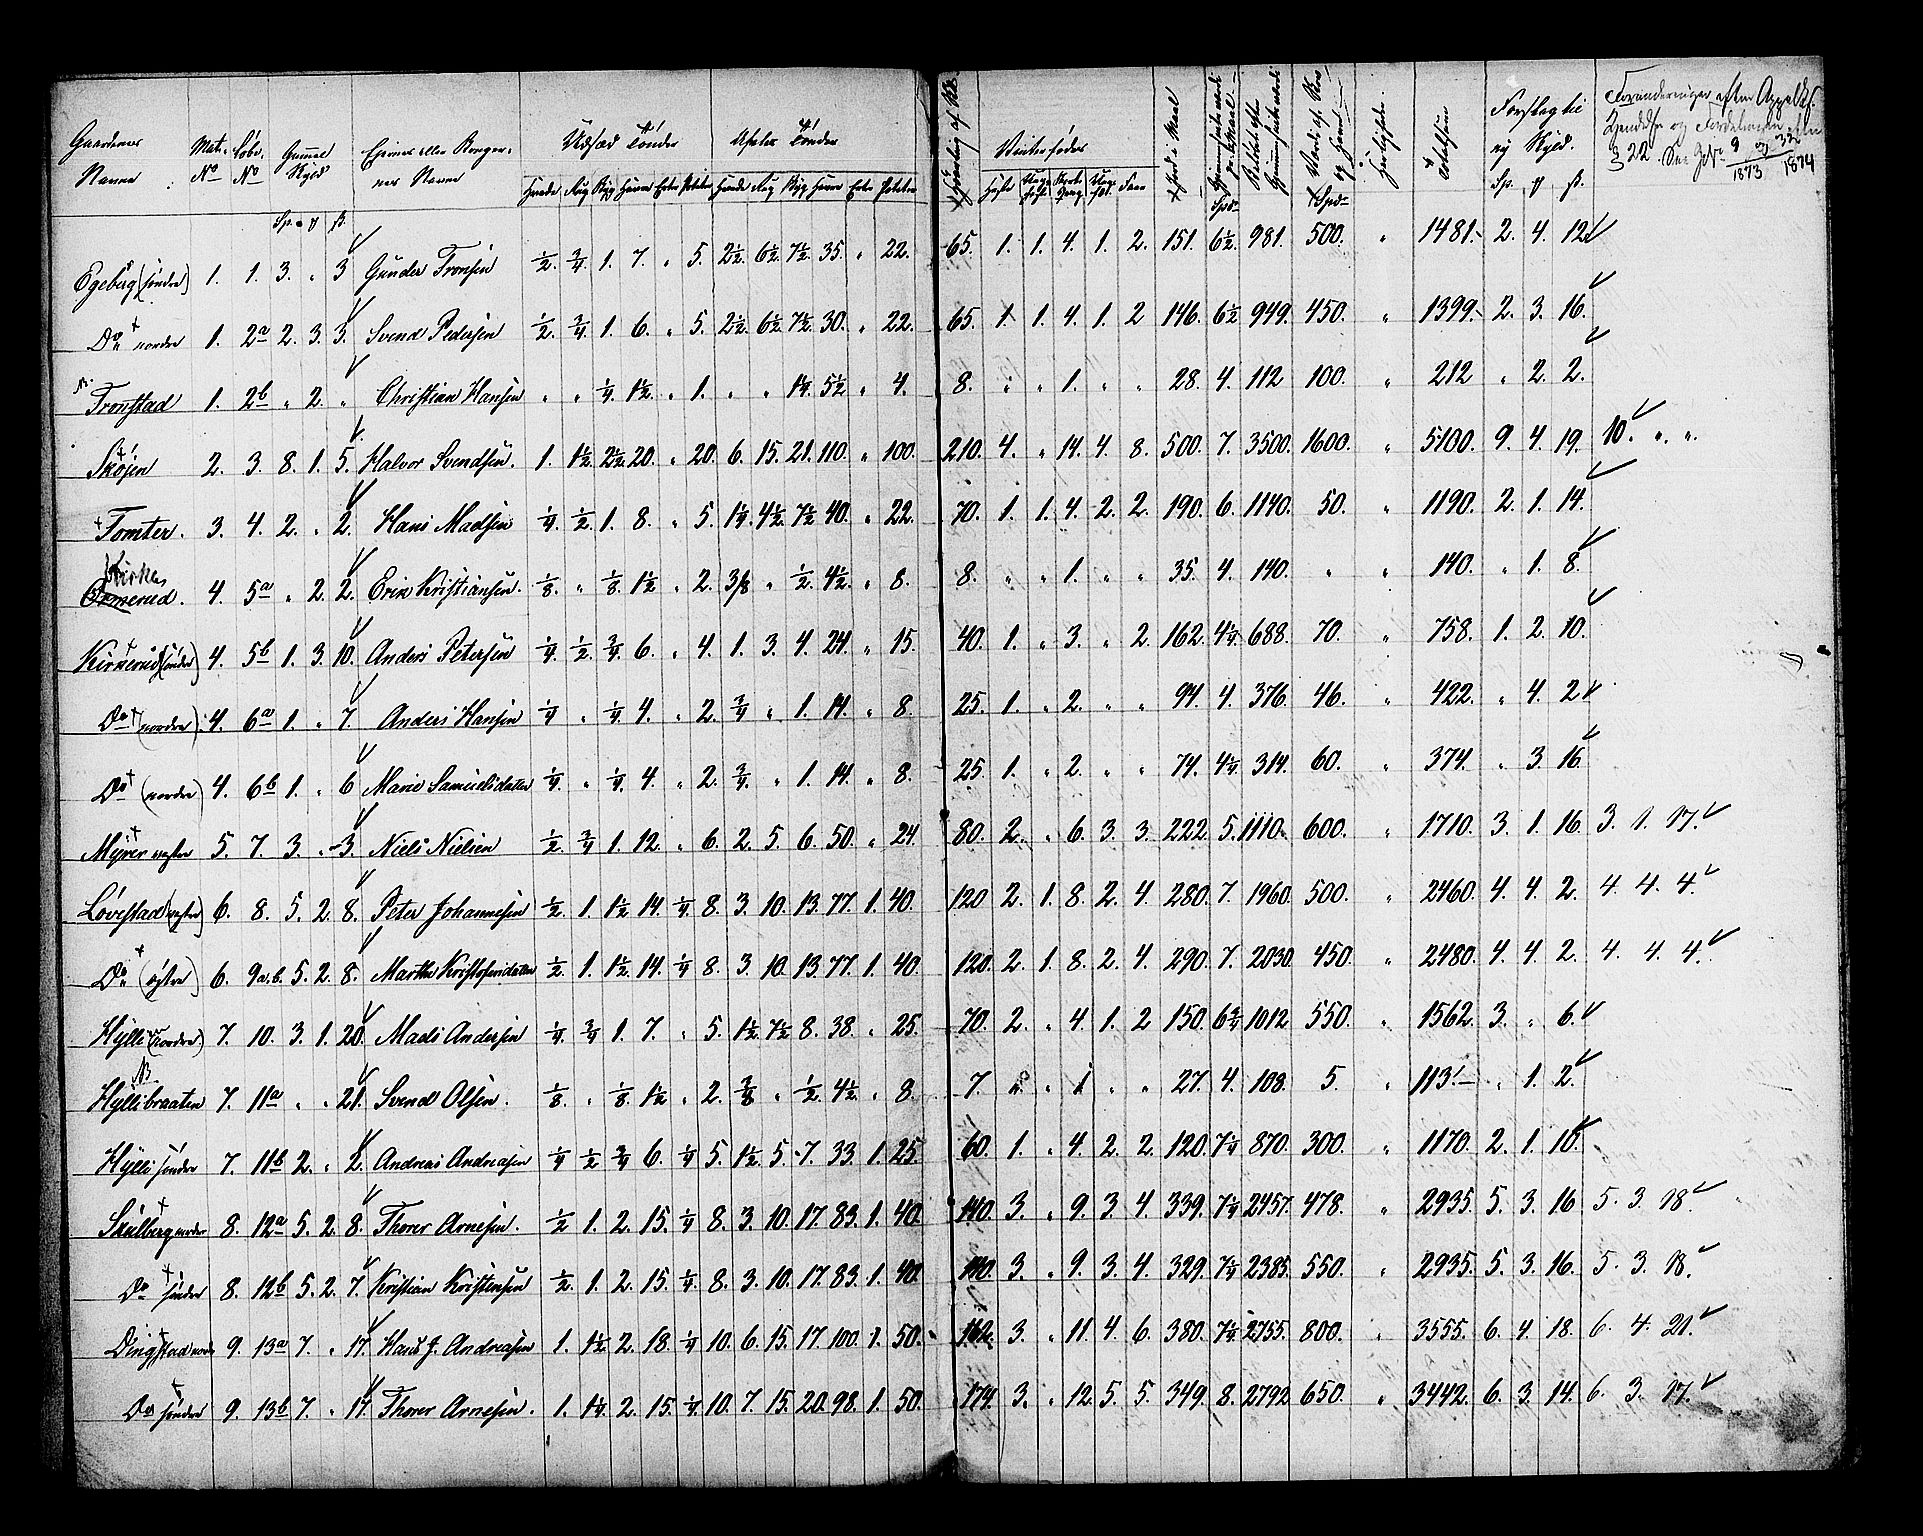 Gaardenes Navne Mat. No Løbe No Gammel Skyld Eiernes eller Brugernes Navne Udsæd Tønder Tønder Vinterføder Forslag til ny Skyld. Forandringer efter
Sp. § 22 9/1873 32/1874
Hvede Rug Byg Havre Erter Poteter Hvede Rug Byg Havre Erter Poteter Heste Sp.
Egeberg (søndre) 1. 1. 3. " 3 Gunder Tronsen ½. ¾. 1. 7. " 5. 2½. 6½. 7½. 35. " 22. 65. 1. 1. 4. 1. 2. 151. 6½. 981. 500. " 1481. 2. 4. 12.
Do nordre 1. 2a 2. 3. 3. Svend Pedersen ½. ¾. 1. 6. " 5. 2½. 6½. 7½. 30. " 22. 65. 1. 1. 4. 1. 2 146. 6½ 949. 450. " 1399. 2. 3. 16.
Tronstad 1. 2b " 2. " Christian Hansen " " ¼. 1½. " 1. " " 1¼. 5½ " 4. 8. " " 1. " " 28. 4. 112 100. " 212 " 2. 2.
Skøien 2. 3. 8. 1. 5. Halvor Svendsen. 1. 1½. 2½. 20. " 20. 6. 15. 21. 110. " 100. 210. 4. " 14. 4. 8. 500. 7. 3500. 1600. " 5100. 9. 4. 19. 10. " "
Tomter. 3. 4. 2. " 2. Hans Madsen ¼. ½. 1. 8. " 5. 1¼. 4½. 7½ 40. " 22. 70. 1. 1. 4. 2. 2. 190. 6. 1140. 50. " 1190. 2. 1. 14.
Ormerud. 4. 5a " 2. 2. Erik Kristiansen. ⅛. " ⅛. 1½ " 2. 3/8 " ½. 4½. " 8. 8. " " 1. " " 35. 4. 140. " " 140. " 1. 8.
Kirkerud (søndre) 4. 5b 1. 3. 10. Anders Petersen ¼. ½. ¾. 6. " 4. 1. 3. 4. 24. " 15. 40. 1. " 3. " 2. 162. 4¼. 688. 70. " 758. 1. 2. 10.
Do (nordre) 4. 6a 1. " 7. Anders Hansen ¼ " ¼. 4. " 2. ¾. " 1. 14. " 8. 25. 1. " 2. " " 94. 4. 376. 46. " 422. " 4. 2
Do (nordre) 4. 6b 1. " 6 Marie Samuelsdatter ¼. " ¼. 4. " 2. ¾. " 1. 14. " 8. 25. 1. " 2. " " 74. 4¼. 314. 60. " 374. " 3. 16
Myrer vestre 5. 7. 3. " 3. Niels Nielsen ½. ¾. 1. 12. " 6. 2. 5. 6. 50. " 24. 80. 2. " 6. 3. 3. 222. 5. 1110. 600. " 1710. 3. 1. 16. 3. 1. 17.
Løvestad (vestre) 6. 8. 5. 2. 8. Peter Johannesen ½. 1. 1½. 14. ¼. 8. 3. 10. 13. 77. 1. 40. 120 2. 1. 8. 2. 4. 280. 7. 1960. 500. " 2460. 4. 4. 2. 4. 4. 4.
Do (østre) 6. 9a.b. 5. 2. 8. Marthe Kristofersdatter ½. 1. 1½. 14. ¼ 8. 3. 10. 13. 77. 1. 40. 120. 2. 1. 8. 2. 4. 290. 7. 2030. 450. " 2480. 4. 4. 2. 4. 4. 4.
Hylli (nordre) 7. 10. 3. 1. 20. Mads Andersen ¼. ¾. 1. 7. " 5. 1½. 7½ 8. 38. " 25. 70. 2. " 4. 1. 2 150. 6¾ 1012 550. " 1562. 3. " 6.
Hyllibraaten 7. 11a " " 21. Svend Olsen. ⅛. " ⅛. 1½ " 2. ⅜ " ½. 4½. " 8. 7. " " 1 " " 27. 4. 108. 5. " 113 " 1. 2.
Hylli søndre 7. 11b 2. " 2. Andreas Andreasen ¼ ½ ¾ 6. ¼ 5. 1½. 5. 7. 33. 1. 25. 60. 1. " 4. 2. 2. 120. 7¼. 870. 300. " 1170. 2. 1. 10.
Skulberg nordre 8. 12a 5. 2. 8. Thorer Arnesen. ½ 1. 2. 15. ¼ 8. 3. 10. 17. 83. 1. 40. 140. 3. " 9. 3. 4. 339. 7¼ 2457. 478. " 2935. 5. 3. 16 5. 3. 18.
Do søndre 8. 12b 5. 2. 7. Kristian Kristensen ½. 1. 2. 15. ¼ 8. 3. 10. 17. 83. 1. 40. 140. 3. " 9. 3. 4. 329. 7¼ 2385. 550. " 2935. 5. 3. 16. 5. 3. 18.
Dingstad nord 9. 13a 7. " 17. Hans J. Andreasen 1. 1½ 2. 18. ¼ 10. 6. 15. 17. 100. 1. 50. 162. 3. " 11. 4. 6. 380. 7¼. 2755. 800. " 3555. 6. 4. 18. 6. 4. 21.
Do søndre 9. 13b 7. " 17. Thorer Arnesen. 1. 1¼. 2. 15. ¼. 10. 7. 15. 20. 98. 1. 50. 174. 3. " 12. 5. 5. 349. 8. 2792 650. " 3442. 6. 3. 14. 6. 3. 17.